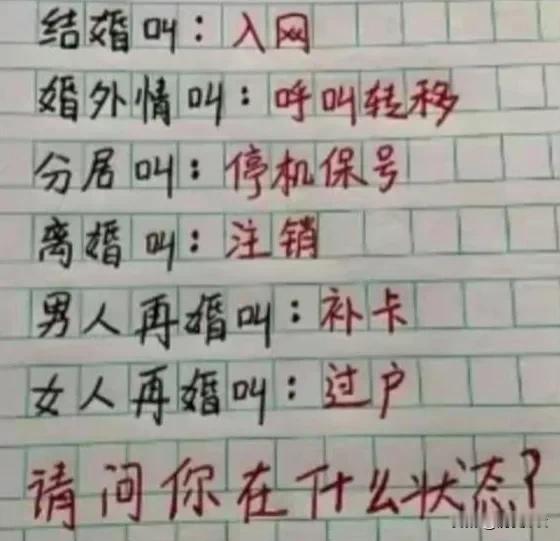 结婚叫：入网
婚外情叫：呼叫转移
分居叫：停机保号
离婚叫：注销
男人再婚叫：补卡
女人再婚叫：过户
请问你在什么状态？